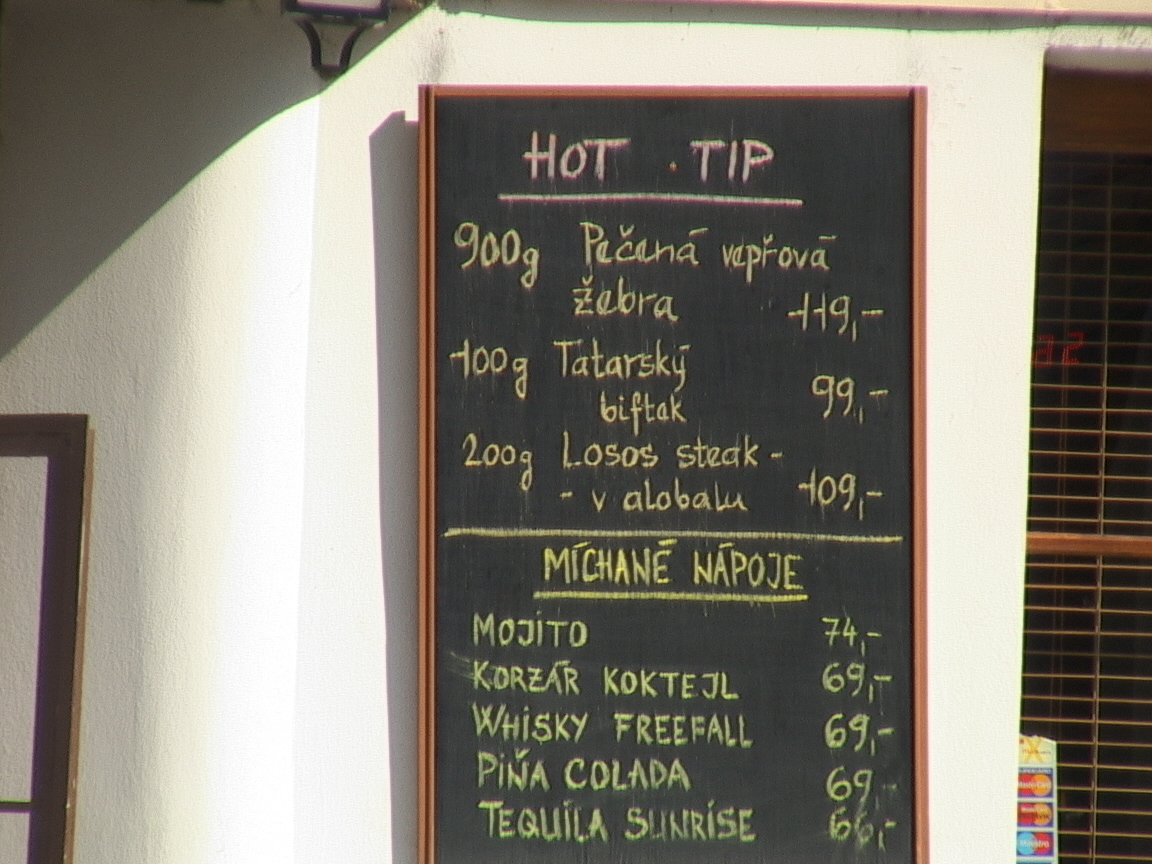 HOT TIP
900g Pečená vepřová
žebra 119,-
100g Tatarský
biftak 99,-
200g Losos steak -
- v alobalu 109,-
MÍCHANÉ NÁPOJE
MOJITO 74,-
KORZÁR KOKTEJL 69,-
WHISKY FREEFALL 69,-
PIŇA COLADA 69,-
TEQUILA SUNRISE 66,-
MasterCard
Maestro